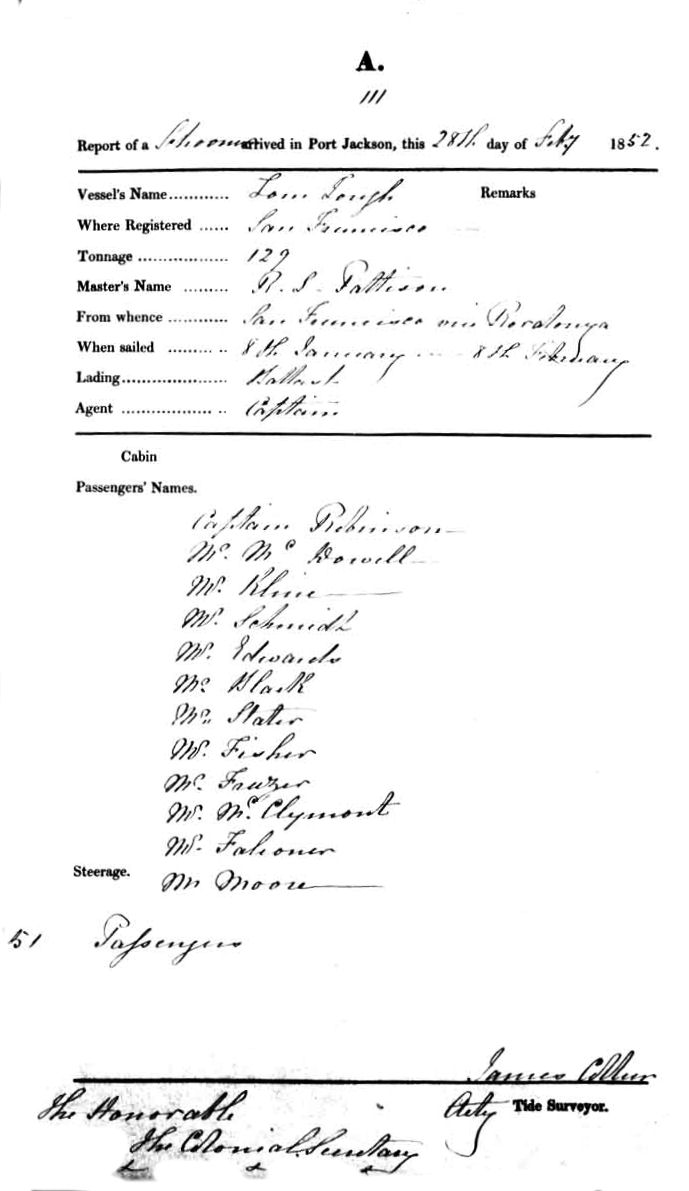 A.
111
Report of a Schooner arrived in Port Jackson, this 28th day of Feby 1852.
Vessel's Name............ Tom Tough Remarks
Where Registered ...... San Francisco
Tonnage .................. 129
Master's Name ......... R. S. Pattison
From whence ............ San Francisco via Rorotonga
When sailed ......... .. 8th January 8th February
Lading..................... Ballast
Agent ..................... .. Captain
Cabin
Passengers' Names.
Captain Robinson
Mr. Mc Dowell
Mr. Kline
Mr. Schmidt
Mr. Edwards
Mr. Black
Mr. Slater
Mr. Fisher
Mr. Frazer
Mr. Mc. Clymont
Mr. Falconer
Steerage. Mr Moore
51 Passengers
James
Actg Tide Surveyor.
The Honorable
The Colonial Secretary